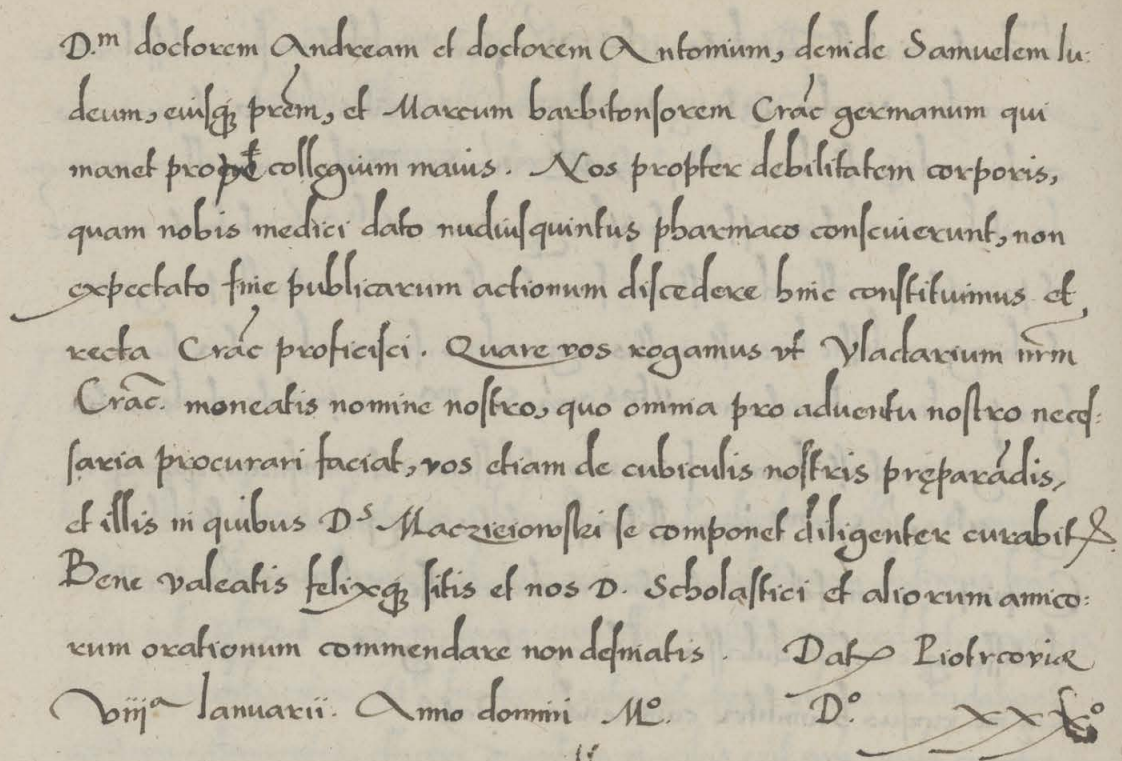 D.m doctorem Andream et doctorem Antonium, deinde Samuelem Iu:
deum, eiusq; prem, et Marcum barbitonsorem Crac germanum qui
manet prope collegium maius. Nos propter debilitatem corporis,
quam nobis medici dato nudiusquintus pharmaco consciuerunt, non
expectato fine publicarum actionum discedere hinc constituimus et
recta Crac proficisci. Quare vos rogamus vt Vladarium nrm
Crac. moneatis nomine nostro, quo omnia pro aduentu nostro neces:
saria procurari faciat, vos etiam de cubiculis nostris pręparādis,
et illis in quibus Ds Maczieiowski se componet diligenter curabit
Bene valeatis felixq; sitis et nos D. Scholastici et aliorum amico:
rum orationum commendare non desinatis. Dat Piotrcovię
Viija Ianuarii. Anno domini Mo. Do. XXXo